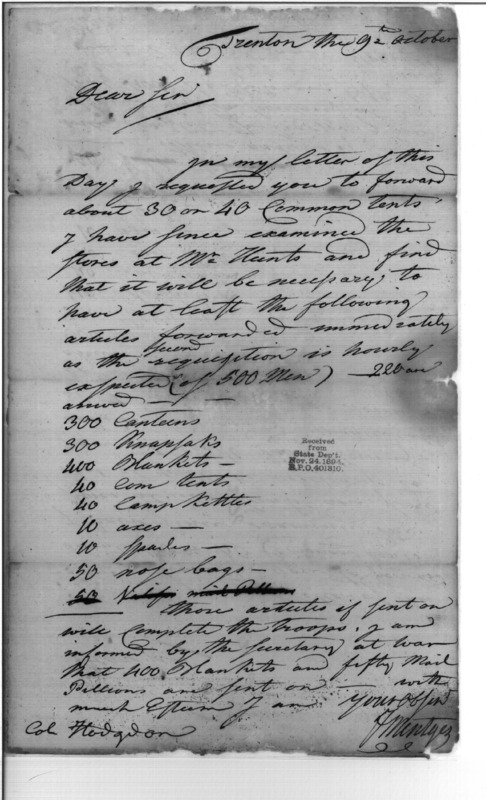 Trenton the 9th October
Dear Sir
In my letter of this
Day I requested you to forward
about 30 or 40 Common tents
I have since examined the
Stores at Mr Hunts and find
that it will be necessary to
have at least the following
articles forwarded immediately
as the second requisition is hourly
expected (of 500 Men) 220 are
arived
300 Canteens
300 Knapsaks
400 Blankets
40 Com tents
40 Camp Kettles
10 axes
10 Spades
50 nose bags
50
those articles if sent on
will complete the troops, I am
informed by the Secretary at War
that 400 Blankets and fifty Mail
Pillions are sent on with
much Esteem I am your Obt Sert
Col Hodgdon
F Mentges
Received
from
State Dep't.
Nov. 24, 1894.
R.P.O. 401810.